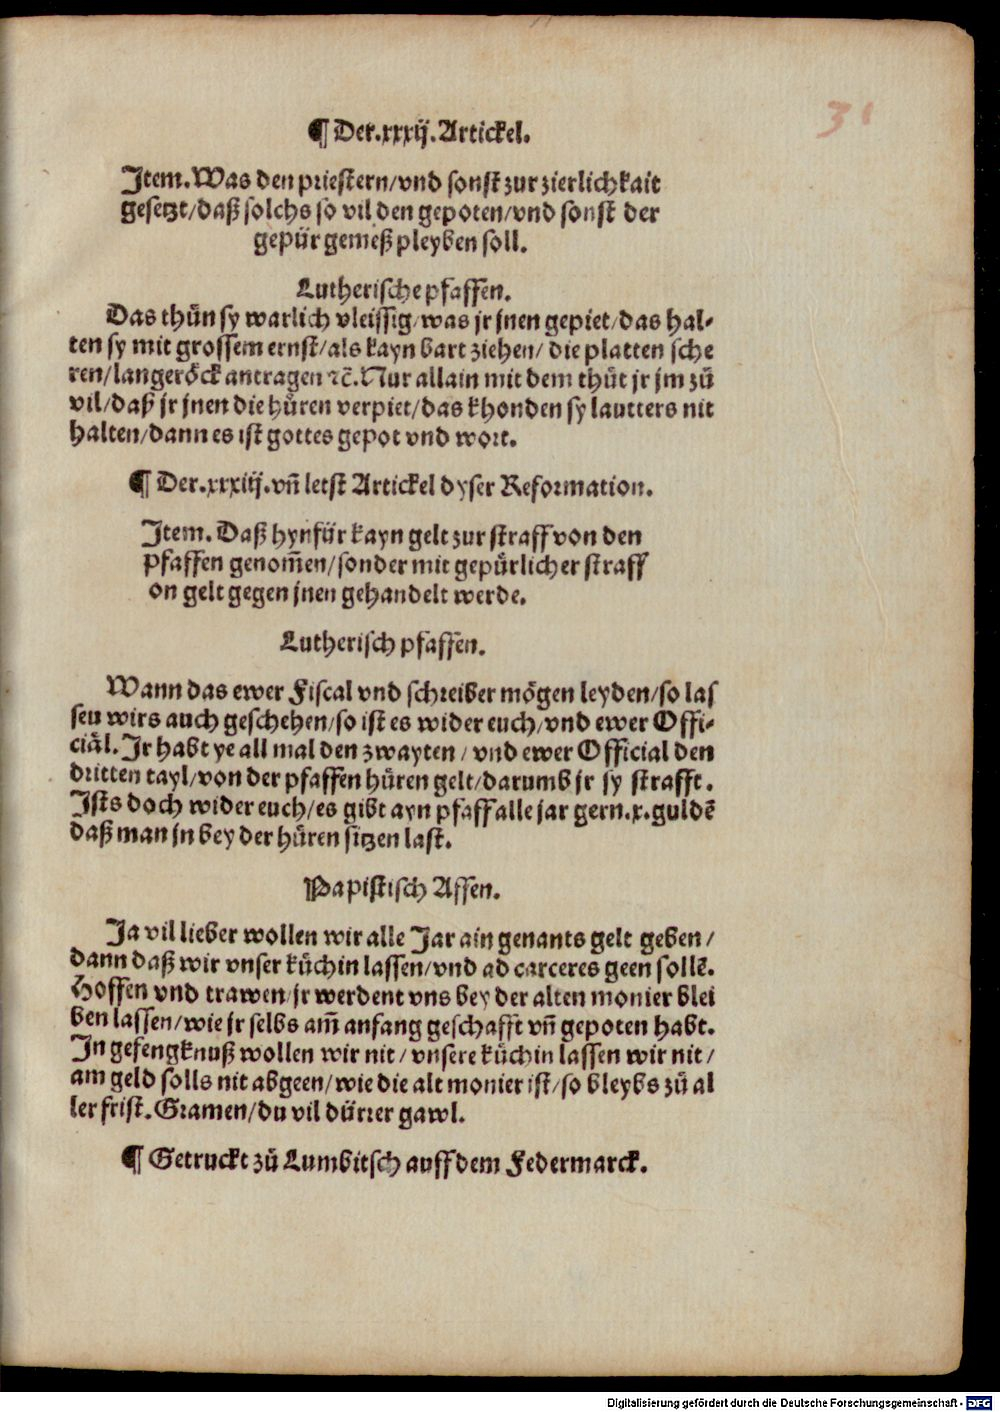 31
¶ Der.xxxij.Artickel.
Item.Was den priestern/vnd sonst zur zierlichkait
gesetzt/daß solchs so vil den gepoten/vnd sonst der
gepür gemeß pleyben soll.
Lutherische pfaffen.
Das thůn sy warlich vleissig/was jr jnen gepiet/das hal-
ten sy mit grossem ernst/als kayn bart ziehen/ die platten sche
ren/lange röck antragen ⁊c̄.Nur allain mit dem thůt jr jm zů
vil/daß jr jnen die hůren verpiet/das khonden sy lautters nit
halten/dann es ist gottes gepot vnd wort.
¶ Der.xxxiij.vn̄ letst Artickel dyser Reformation.
Item. Daß hynfür kayn gelt zur straff von den
pfaffen genom̄en/sonder mit gepürlicher straff
on gelt gegen jnen gehandelt werde.
Lutherisch pfaffen.
Wann das ewer Fiscal vnd schreiber mögen leyden/so las
sen wirs auch geschehen/so ist es wider euch/vnd ewer Offi-
ciäl.Ir habt ye all mal den zwayten / vnd ewer Official den
dritten tayl/von der pfaffen hůren gelt/darumb jr sy strafft.
Ists doch wider euch/es gibt ayn pfaff alle jar gern.x.guldē
daß man jn bey der hůren sitzen last.
Papistisch Affen.
Ja vil lieber wollen wir alle Jar ain genants gelt geben/
dann daß wir vnser küchin lassen/vnd ad carceres geen sollē.
Hoffen vnd trawen/jr werdent vns bey der alten monier blei
ben lassen/wie jr selbs am̄ anfang geschafft vn̄ gepoten habt.
In gefengknuß wollen wir nit/ vnsere küchin lassen wir nit/
am geld solls nit abgeen/wie die alt monier ist/so bleybs zů al
ler frist.Gramen/du vil dürrer gawl.
¶ Getruckt zů Lumbitsch auff dem Federmarck.
Digitalisierung gefördert durch die Deutsche Forschungsgemeinschaft - DFG